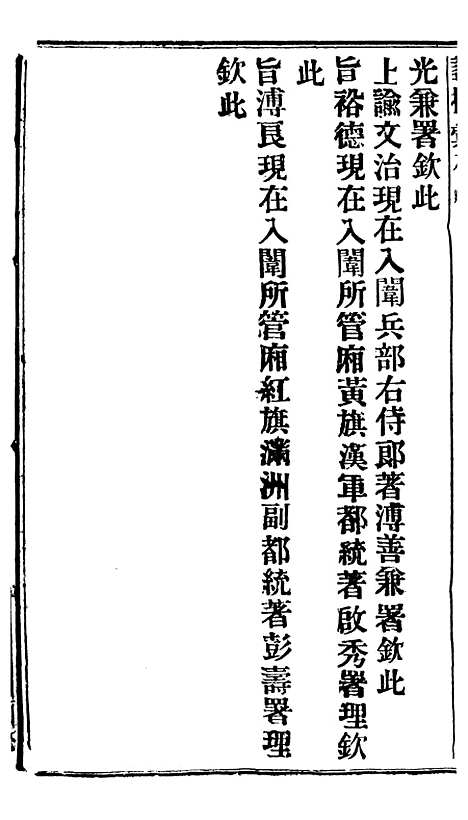 光兼署欽此
上諭文治現在入闈兵部右侍郎著溥善兼署欽此
旨裕德現在入闈所管廂黃旗漢軍都統著啟秀署理欽
此
旨溥良現在入闈所管廂紅旗滿洲副都統著彭壽署理
欽此